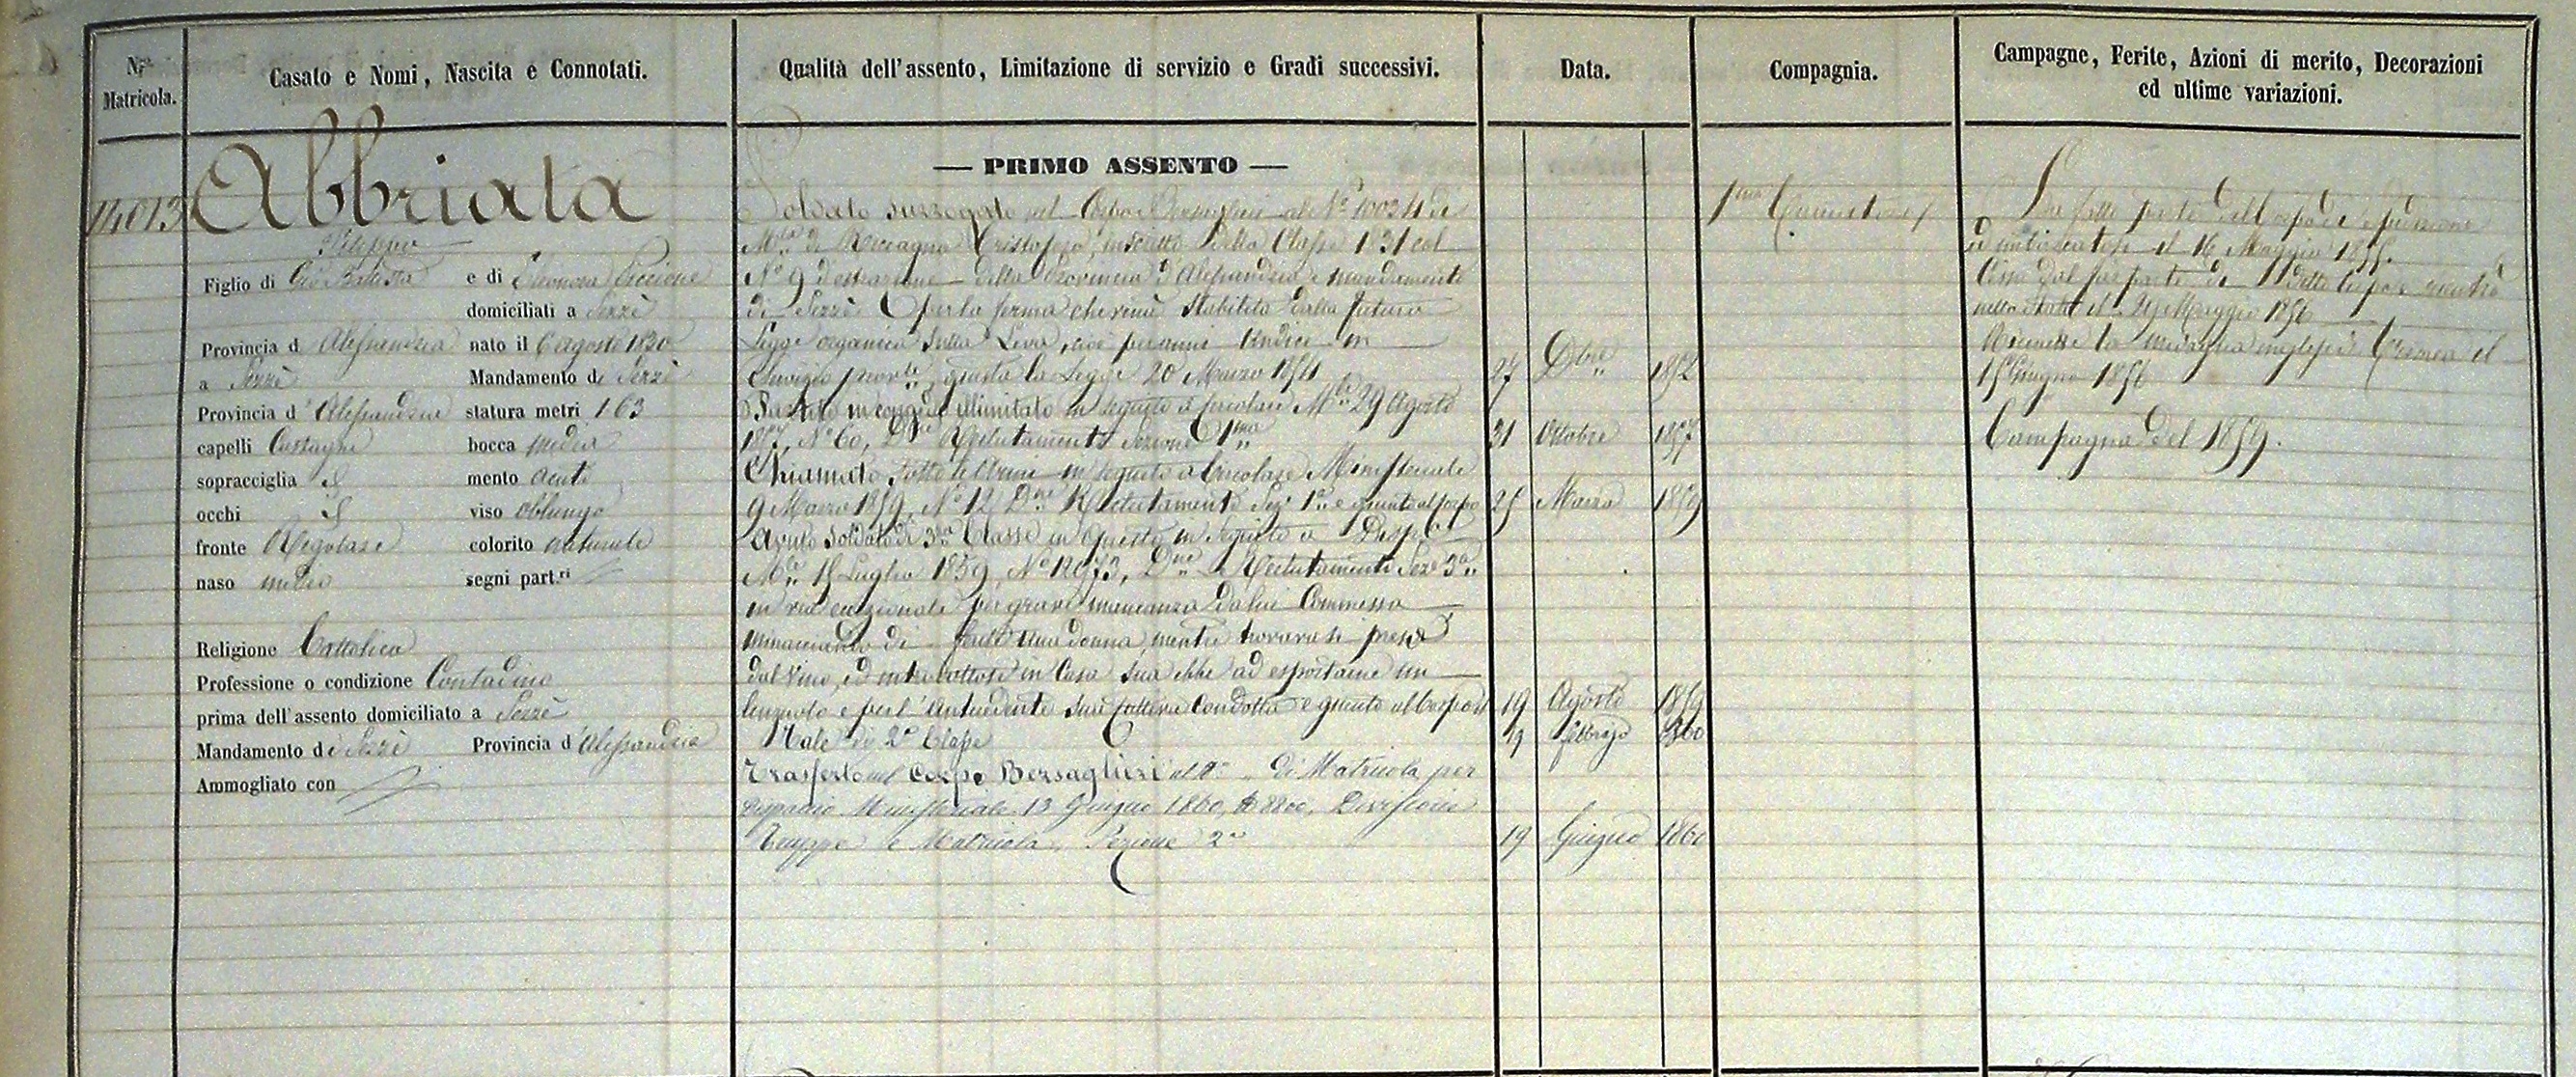 N.ro Matricola.
Casato e Nomi, Nascita e Connotati.
Qualità dell'assento, Limitazione di servizio e Gradi successivi.
Data.
Compagnia.
Campagne, Ferite, Azioni di merito, Decorazioni
ed ultime variazioni.
14013
Abbriata
Filippo
Figlio di Gio Battista e di Eleonora Piccione
domiciliati a Sezzè
Provincia d Alessandria nato il 6 agosto 1830
a Sezzè Mandamento di Sezzè
Provincia d'Alessandria statura metri 1 63
capelli Castagni bocca media
sopracciglia S mento acuto
occhi S viso oblungo
fronte Regolare colorito naturale
naso medio segni part.ri
Religione Cattolica
Professione o condizione Contadino
prima dell'assento domiciliato a Sezzè
Mandamento di Sezzè Provincia d'Alessandria
Ammogliato con
— PRIMO ASSENTO —
Soldato surrogato nel Corpo Bersaglieri al N.o 10034 di
M.la di Roccagna Cristoforo, inscritto della Classe 1831 col
N.o 9 d'estrazione della Provincia d'Alessandria e mandamento
di Sezzè per la ferma che verrà stabilita dalla futura
Legge organica sulla Leva, cioè per anni Undici in
servizio prov.le, giusta la Legge 20 Marzo 1854 27 Dbre 1852
Partito in congedo illimitato in seguito a circolare M.le 29 Agosto
1857, N.o 60, D.ne Reclutamento Sezione 1.ma 31 Ottobre 1857
Chiamato sotto le Armi in seguito a Circolare Ministeriale
9 Marzo 1859, N.o 12, D.ne Reclutamento Sez.e 1.a e giunto al corpo 25 Marzo 1859
Avuto soldato di 3.a Classe in questo in seguito a Disp.
M.le 15 Luglio 1859, N.o 12073, D.ne Reclutamento Sez.e 3.a
in via eccezionale per grave mancanza da lui Commessa
minacciando di ferire una donna, mentre trovavasi preso
dal Vino, ed introdottosi in Casa sua ebbe ad esportarne un
lenzuolo e per l'antecedente sua cattiva Condotta e giunto al Corpo 19 Agosto 1859
Tale di 2.a Classe 11 febbrajo 1860
Trasferto nel Corpo Bersaglieri al N.o „ di Matricola per
dispaccio Ministeriale 13 Giugno 1860, N. 8800, Divisione
Truppe e Matricola, Sezione 2.a 19 Giugno 1860
1.ma
Ha fatto parte del Corpo di spedizione
ed imbarcatosi il 16 Maggio 1855.
Cessò dal far parte di detto Corpo e rientrò
nello stato il 29 Maggio 1856
Ricevette la medaglia inglese di Crimea il
15 Giugno 1856
Campagna del 1859.